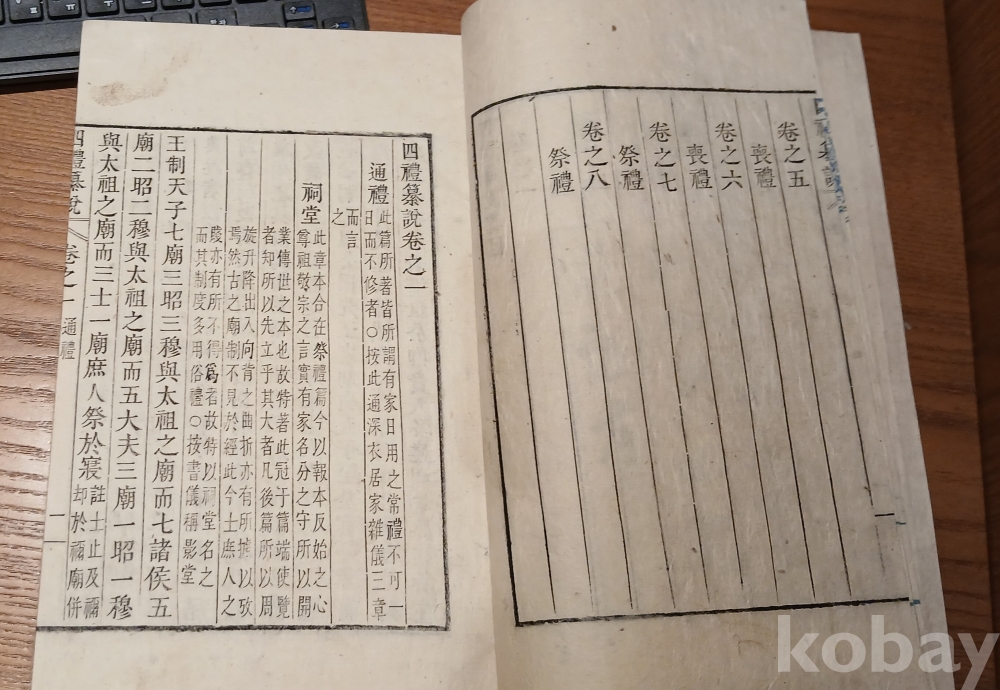 卷之五
喪禮
卷之六
喪禮
卷之七
祭禮
卷之八
祭禮
四禮纂說卷之一
通禮 此篇所著皆所謂有家日用之常禮不可一
日而不修者○按此通深衣居家雜儀三章
而言
之
祠堂 此章本合在祭禮篇今以報本反始之心
尊祖敬宗之意實有家名分之守所以開
業傳世之本也故特著此冠于篇端使覽
者知所以先立乎其大者凡後篇所以周
旋升降出入向背之曲折亦有所據以攷
焉然古之廟制不見於經此今士庶人之
賤亦有所不得爲者故特以祠堂名之
而其制度多用俗禮○按書儀稱影堂
王制天子七廟三昭三穆與太祖之廟而七諸侯五
廟二昭二穆與太祖之廟而五大夫三廟一昭一穆
與太祖之廟而三士一廟庶人祭於寢 註士止及禰
却於禰廟併
四禮纂說 卷之一 通禮 一
kobay